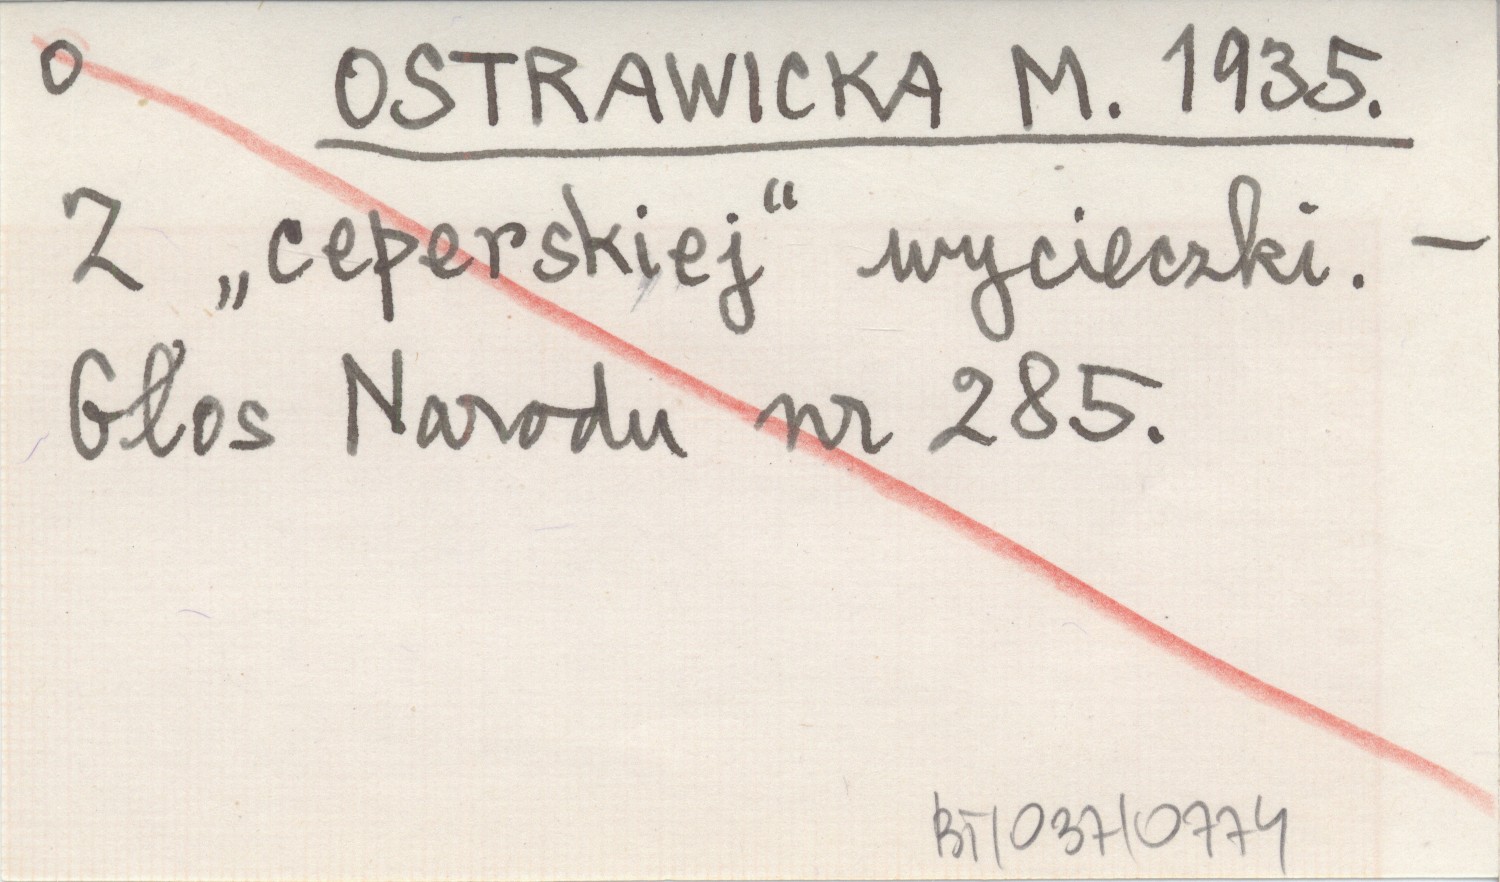 o OSTRAWICKA M. 1935.
Z „ceperskiej“ wycieczki. —
Głos Narodu nr 285.
BT/037/0774